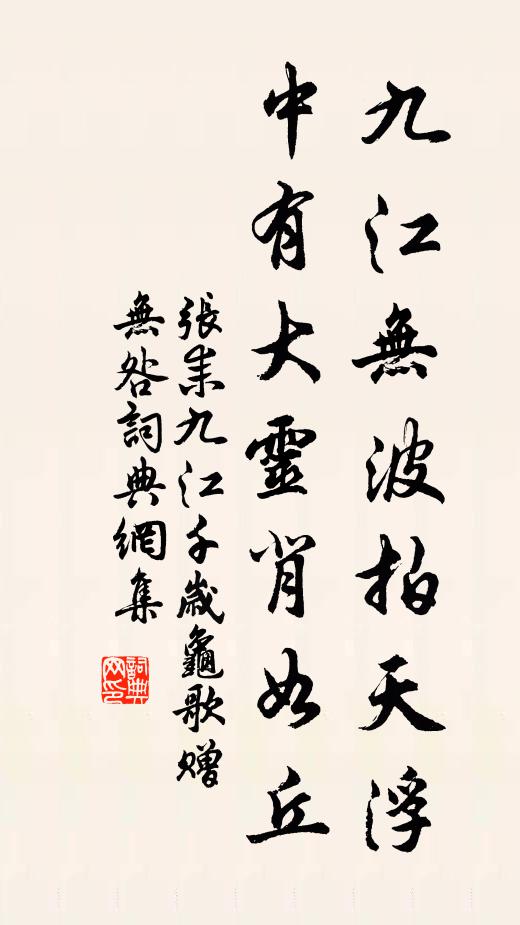 九江無波拍天浮
中有大靈背如丘
張耒九江千歲龜歌贈
無咎詞典網集
詞典網印